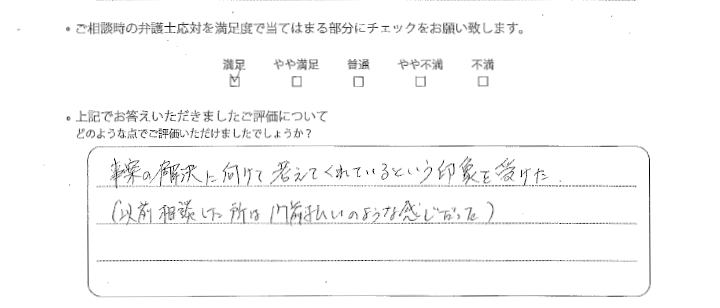 • ご相談時の弁護士応対を満足度で当てはまる部分にチェックをお願い致します。
満足 やや満足 普通 やや不満 不満
☑ □ □ □ □
• 上記でお答えいただきましたご評価について
どのような点でご評価いただけましたでしょうか？
事案の解決に向けて考えてくれているという印象を受けた.
(以前相談した所は門前払いのような感じだった)